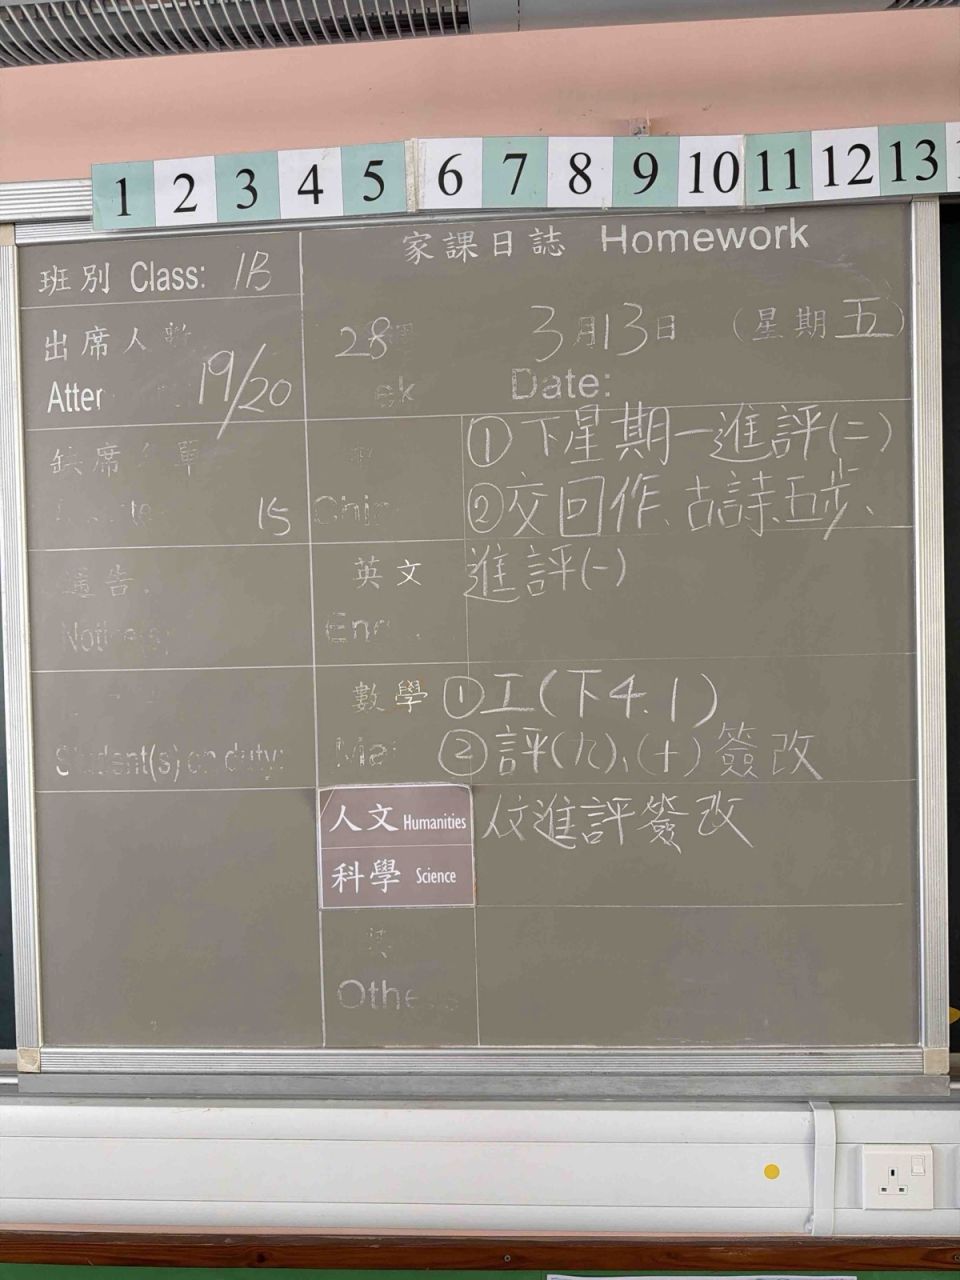 1 2 3 4 5 6 7 8 9 10 11 12 13
家課日誌 Homework
班別 Class: 1B
出席人數
19/20
28
3月13日 (星期五)
Date:
缺席名單
15
①下星期一進評(二)
②交回作、古詩、五步、
進評(一)
通告
英文
數學
①工(下4.1)
②評(九)、(十)簽改
Student(s) on duty:
人文 Humanities
科學 Science
進評簽改